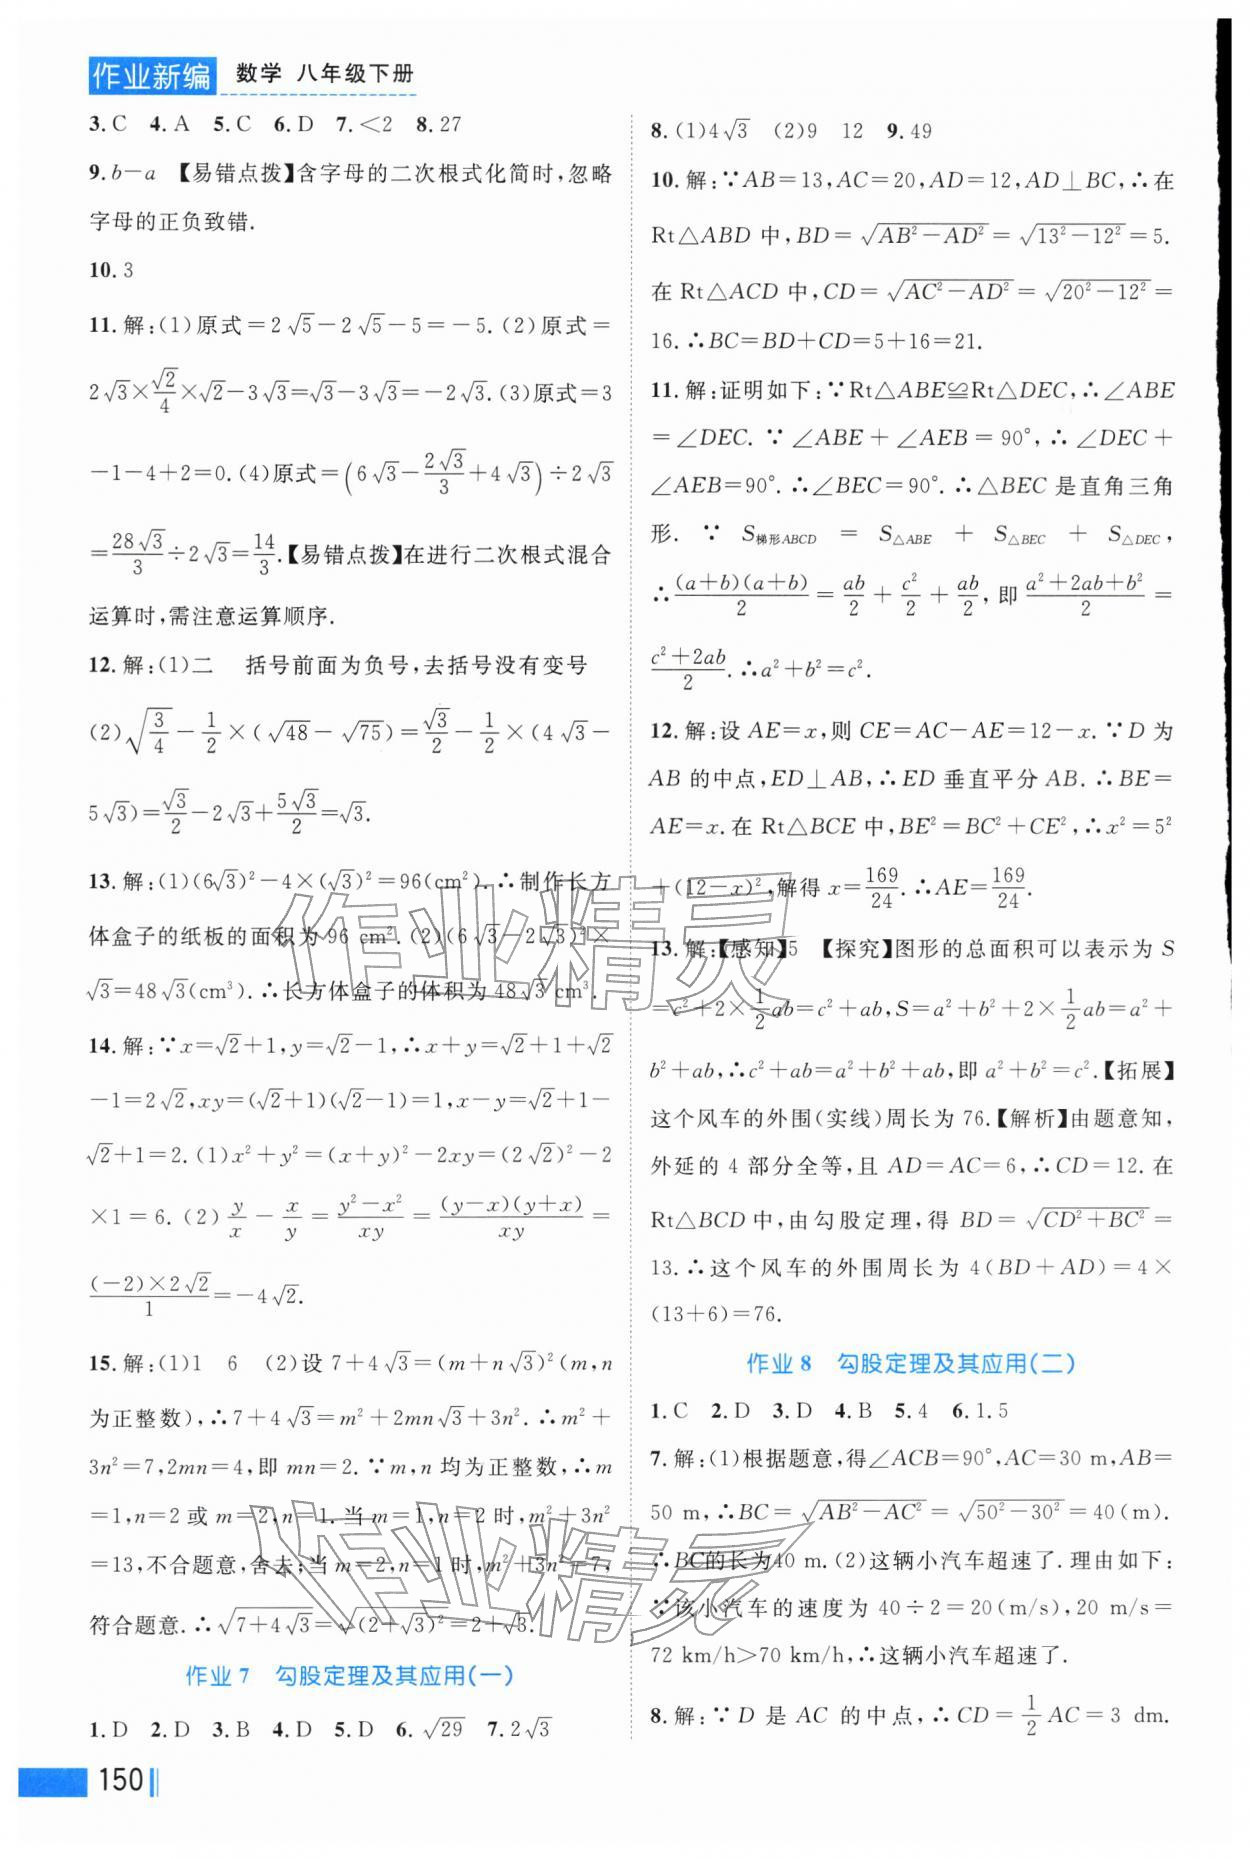 作业新编 数学 八年级下册
3.C 4.A 5.C 6.D 7.<2 8.27
9.b-a 【易错点拨】含字母的二次根式化简时,忽略
字母的正负致错.
10.3
11.解:(1)原式=2√5-2√5-5=-5.(2)原式=
2√3×√2/4×√2-3√3=√3-3√3=-2√3.(3)原式=3
-1-4+2=0.(4)原式=(6√3-2√3/3+4√3)÷2√3
=28√3/3÷2√3=14/3.【易错点拨】在进行二次根式混合
运算时,需注意运算顺序.
12.解:(1)二 括号前面为负号,去括号没有变号
(2)√(3/4)-1/2×(√48-√75)=√3/2-1/2×(4√3-
5√3)=√3/2-2√3+5√3/2=√3.
13.解:(1)(6√3)²-4×(√3)²=96(cm²).∴制作长方
体盒子的纸板的面积为96 cm².(2)(6√3-2√3)²×
√3=48√3(cm³).∴长方体盒子的体积为48√3 cm³.
14.解:∵x=√2+1,y=√2-1,∴x+y=√2+1+√2
-1=2√2,xy=(√2+1)(√2-1)=1,x-y=√2+1-
√2+1=2.(1)x²+y²=(x+y)²-2xy=(2√2)²-2
×1=6.(2)y/x-x/y=(y²-x²)/xy=(y-x)(y+x)/xy=
(-2)×2√2/1=-4√2.
15.解:(1)1 6 (2)设7+4√3=(m+n√3)²(m,n
为正整数),∴7+4√3=m²+2mn√3+3n².∴m²+
3n²=7,2mn=4,即mn=2.∵m,n均为正整数,∴m
=1,n=2或m=2,n=1.当m=1,n=2时,m²+3n²
=13,不合题意,舍去;当m=2,n=1时,m²+3n²=7,
符合题意.∴√(7+4√3)=√(2+√3)²=2+√3.
作业7 勾股定理及其应用(一)
1.D 2.D 3.B 4.D 5.D 6.√29 7.2√3
150
8.(1)4√3 (2)9 12 9.49
10.解:∵AB=13,AC=20,AD=12,AD⊥BC,∴在
Rt△ABD中,BD=√(AB²-AD²)=√(13²-12²)=5.
在Rt△ACD中,CD=√(AC²-AD²)=√(20²-12²)=
16.∴BC=BD+CD=5+16=21.
11.解:证明如下:∵Rt△ABE≌Rt△DEC,∴∠ABE
=∠DEC.∵∠ABE+∠AEB=90°,∴∠DEC+
∠AEB=90°.∴∠BEC=90°.∴△BEC是直角三角
形.∵S梯形ABCD=S△ABE+S△BEC+S△DEC,
∴(a+b)(a+b)/2=ab/2+c²/2+ab/2,即(a²+2ab+b²)/2=
(c²+2ab)/2.∴a²+b²=c².
12.解:设AE=x,则CE=AC-AE=12-x.∵D为
AB的中点,ED⊥AB,∴ED垂直平分AB.∴BE=
AE=x.在Rt△BCE中,BE²=BC²+CE²,∴x²=5²
+(12-x)²,解得x=169/24.∴AE=169/24.
13.解:【感知】5 【探究】图形的总面积可以表示为S
=c²+2×1/2ab=c²+ab,S=a²+b²+2×1/2ab=a²+
b²+ab,∴c²+ab=a²+b²+ab,即a²+b²=c².【拓展】
这个风车的外围(实线)周长为76.【解析】由题意知,
外延的4部分全等,且AD=AC=6,∴CD=12.在
Rt△BCD中,由勾股定理,得BD=√(CD²+BC²)=
13.∴这个风车的外围周长为4(BD+AD)=4×
(13+6)=76.
作业8 勾股定理及其应用(二)
1.C 2.D 3.D 4.B 5.4 6.1.5
7.解:(1)根据题意,得∠ACB=90°,AC=30 m,AB=
50 m,∴BC=√(AB²-AC²)=√(50²-30²)=40(m).
∴BC的长为40 m.(2)这辆小汽车超速了.理由如下:
∵该小汽车的速度为40÷2=20(m/s),20 m/s=
72 km/h>70 km/h,∴这辆小汽车超速了.
8.解:∵D是AC的中点,∴CD=1/2AC=3 dm.
作业精灵
作业精灵